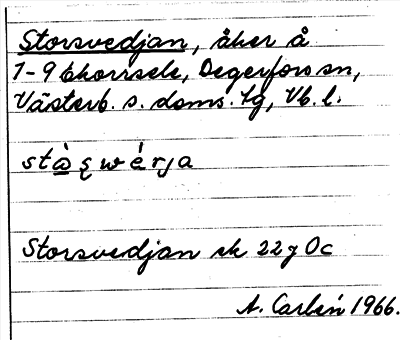 Storsvedjan, åker å
1-9 Ekorrsele, Degerfors sn,
Västerb. s. doms. tg, Vb. l.
Storsvedjan ek 22 g 0c
A. Carlén 1966.